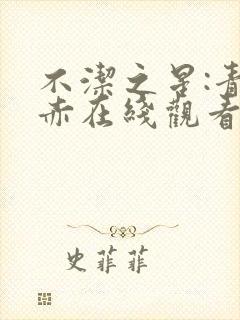 不潔之星:青
赤在綫觀看
史菲菲